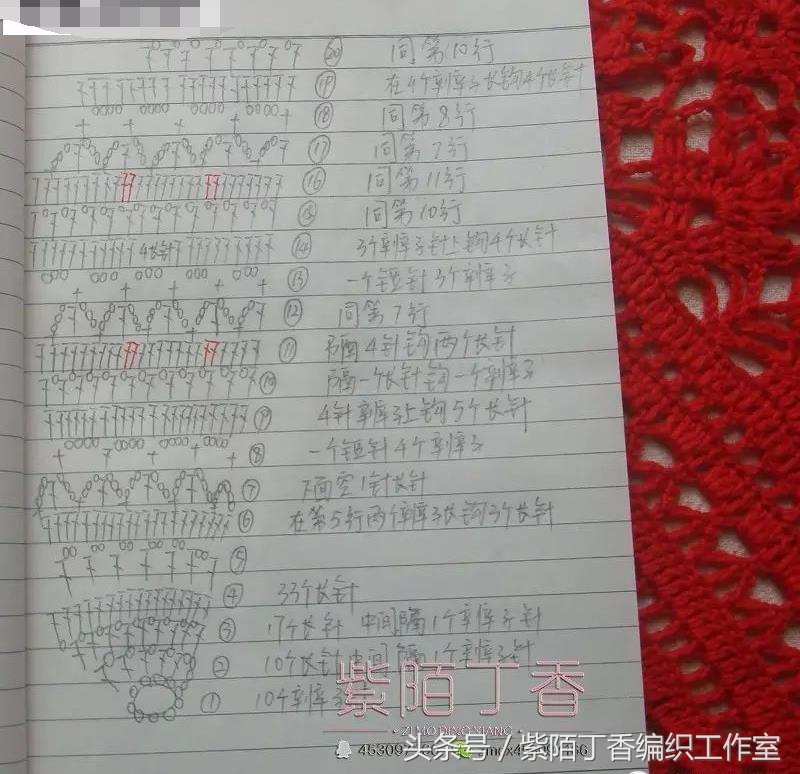 ⑳ 同第10行
⑲ 在4个辫子长钩4个长针
⑱ 同第8行
⑰ 同第7行
⑯ 同第11行
⑮ 同第10行
4长针 ⑭ 3个辫子针上钩4个长针
⑬ 一个短针3个辫子
⑫ 同第7行
⑪ 隔4针钩两个长针
⑩ 隔一个长针钩一个辫子
⑨ 4针辫子上钩5个长针
⑧ 一个短针4个辫子
⑦ 下面空1针长针
⑥ 在第5行两个辫子长钩3个长针
⑤
④ 33个长针
③ 17个长针 中间隔1个辫子针
② 10个长针中间隔1个辫子针
① 10个辫子
紫陌丁香
ZI MO DING XIANG
头条号／紫陌丁香编织工作室